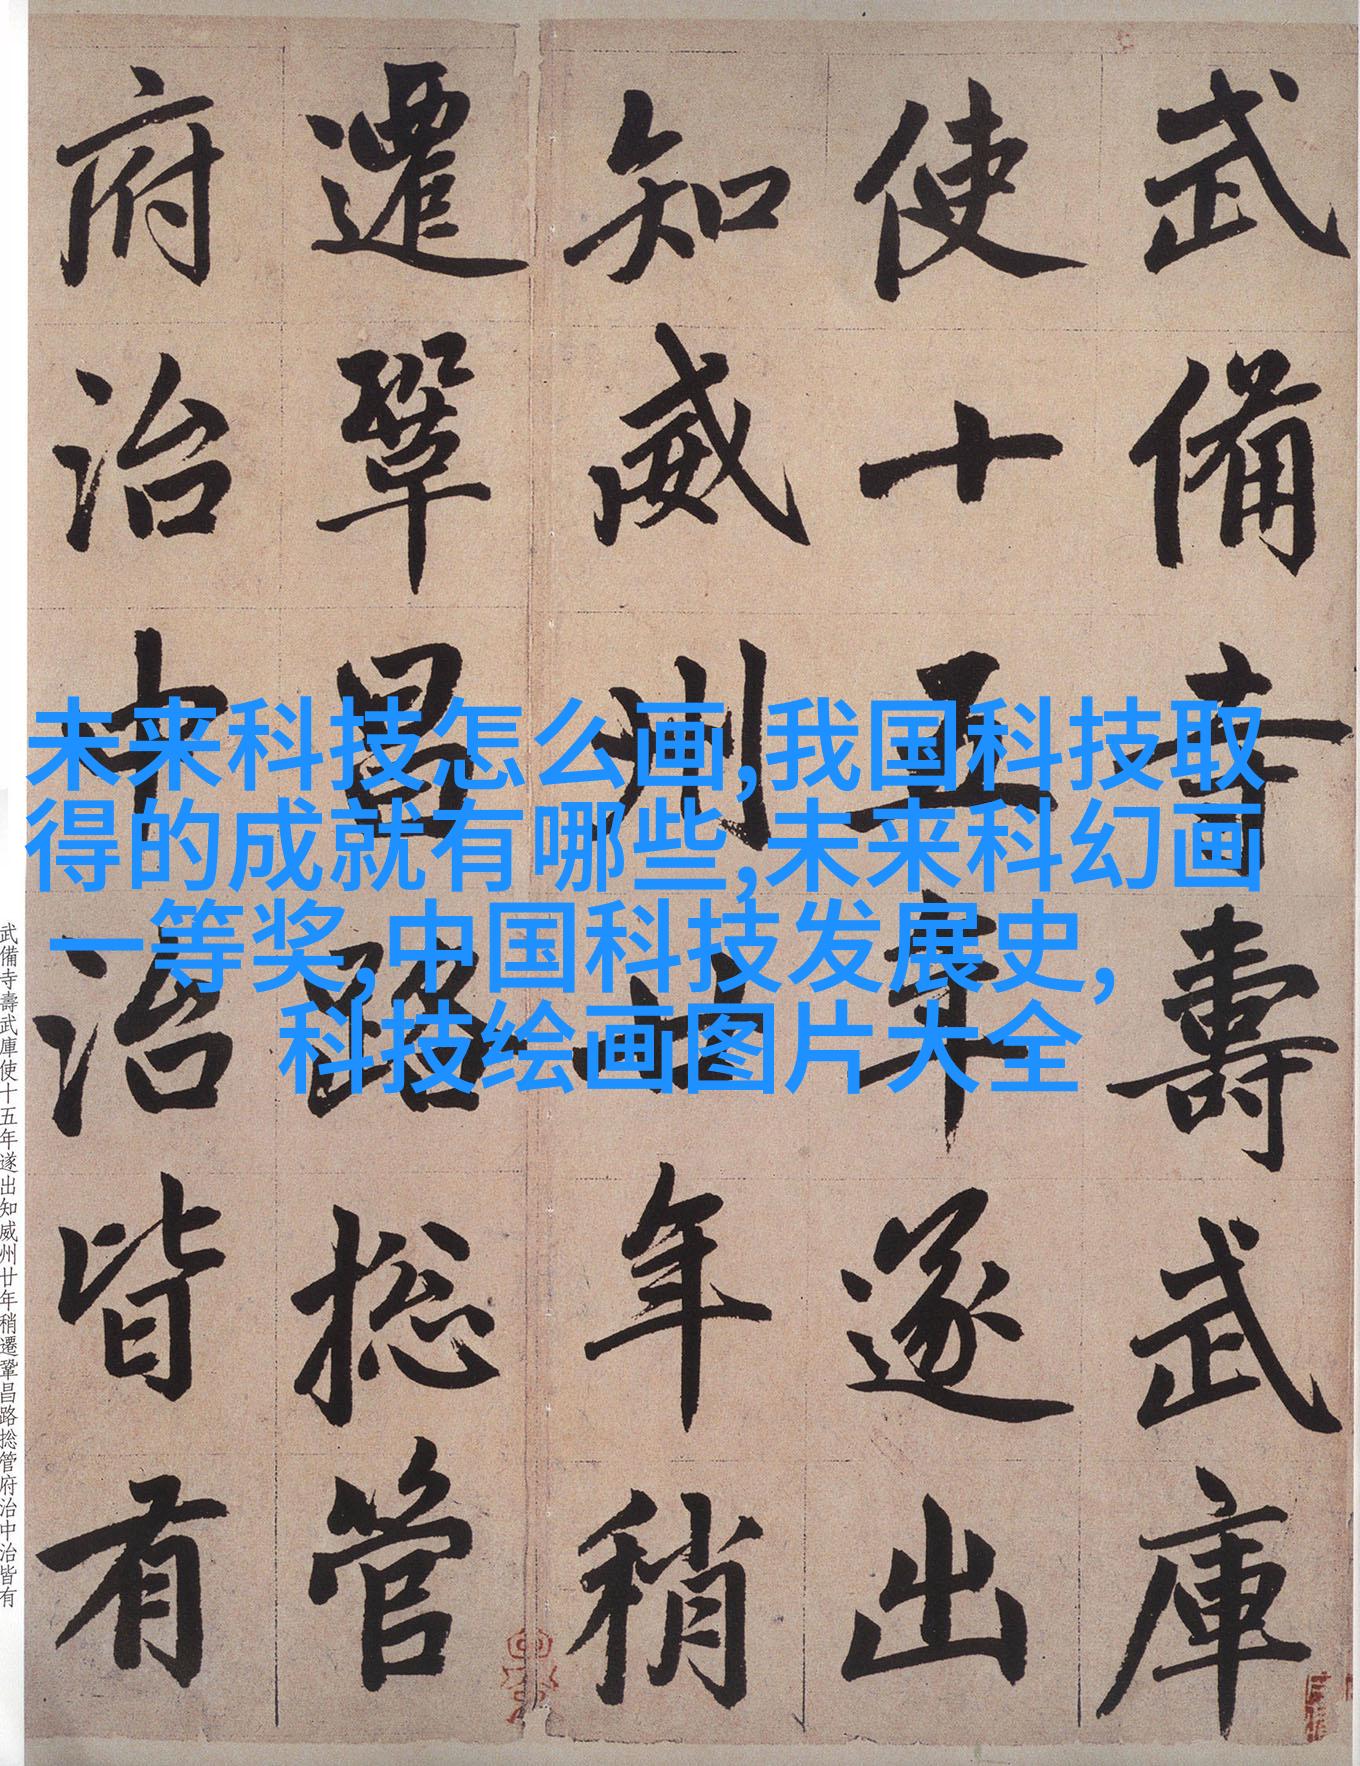 武備寺壽武庫
使十五年遂出
知威州廿年稍
遷鞏昌路捴管
府治中治皆有
未来科技怎么画,我国科技取
得的成就有哪些,未来科幻画
一等奖,中国科技发展史,
科技绘画图片大全
武備寺壽武庫使十五年遂出知威州廿年稍遷鞏昌路捴管府治中治皆有